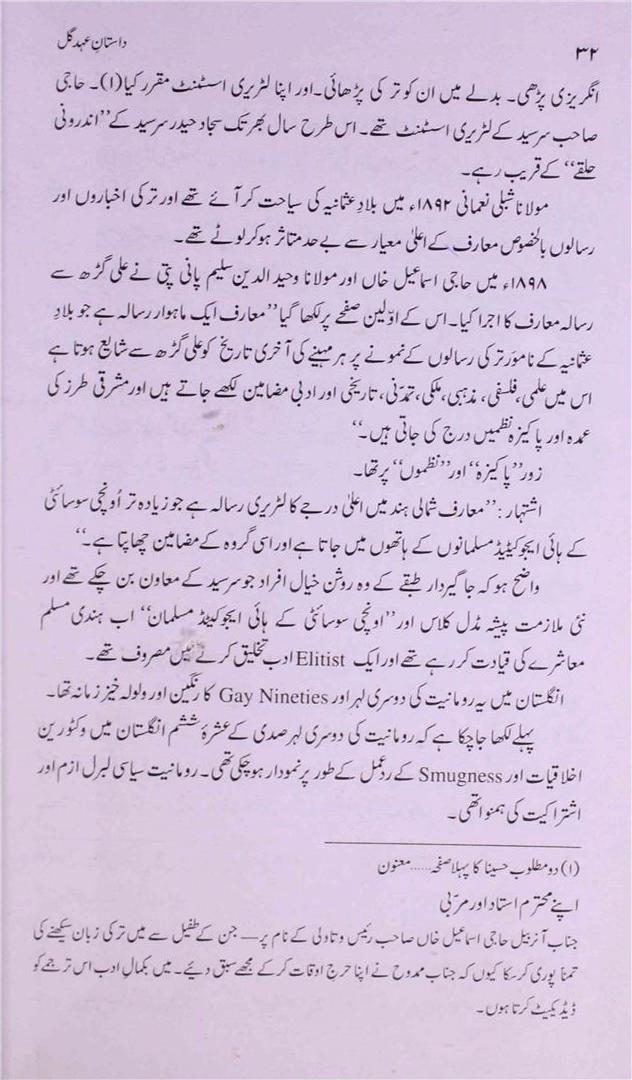 ۳۲
داستانِ عہدِ گل
انگریزی پڑھی۔ بدلے میں ان کو ترکی پڑھائی۔ اور اپنا لٹریری اسسٹنٹ مقرر کیا(۱)۔ حاجی
صاحب سرسید کے لٹریری اسسٹنٹ تھے۔ اس طرح سال بھر تک سجاد حیدر سرسید کے ’’اندرونی
حلقے‘‘ کے قریب رہے۔
مولانا شبلی نعمانی ۱۸۹۲ء میں بلادِ عثمانیہ کی سیاحت کر آئے تھے اور ترکی اخباروں اور
رسالوں بالخصوص معارف کے اعلیٰ معیار سے بے حد متاثر ہو کر لوٹے تھے۔
۱۸۹۸ء میں حاجی اسماعیل خاں اور مولانا وحید الدین سلیم پانی پتی نے علی گڑھ سے
رسالہ معارف کا اجرا کیا۔ اس کے اوّلین صفحے پر لکھا گیا ’’معارف ایک ماہوار رسالہ ہے جو بلادِ
عثمانیہ کے نامور ترکی رسالوں کے نمونے پر ہر مہینے کی آخری تاریخ کو علی گڑھ سے شایع ہوتا ہے
اس میں علمی، فلسفی، مذہبی، ملکی، تمدّنی، تاریخی اور ادبی مضامین لکھے جاتے ہیں اور مشرقی طرز کی
عمدہ اور پاکیزہ نظمیں درج کی جاتی ہیں۔‘‘
زور ’’پاکیزہ‘‘ اور ’’نظموں‘‘ پر تھا۔
اشتہار: ’’معارف شمالی ہند میں اعلیٰ درجے کا لٹریری رسالہ ہے جو زیادہ تر اُونچی سوسائٹی
کے ہائی ایجوکیٹیڈ مسلمانوں کے ہاتھوں میں جاتا ہے اور اسی گروہ کے مضامین چھاپتا ہے۔‘‘
واضح ہو کہ جاگیردار طبقے کے وہ روشن خیال افراد جو سرسید کے معاون بن چکے تھے اور
نئی ملازمت پیشہ مڈل کلاس اور ’’اونچی سوسائٹی کے ہائی ایجوکیٹڈ مسلمان‘‘ اب ہندی مسلم
معاشرے کی قیادت کر رہے تھے اور ایک Elitist ادب تخلیق کرنے میں مصروف تھے۔
انگلستان میں یہ رومانیت کی دوسری لہر اور Gay Nineties کا رنگین اور ولولہ خیز زمانہ تھا۔
پہلے لکھا جا چکا ہے کہ رومانیت کی دوسری لہر صدی کے عشرۂ ششم انگلستان میں وکٹورین
اخلاقیات اور Smugness کے ردِ عمل کے طور پر نمودار ہو چکی تھی۔ رومانیت سیاسی لبرل ازم اور
اشتراکیت کی ہمنوا تھی۔
(۱) دو مطلوب حسینا کا پہلا صفحہ ...... معنون
اپنے محترم استاد اور مربّی
جناب آنریبل حاجی اسماعیل خاں صاحب رئیس وتاولی کے نام پر — جن کے طفیل سے میں ترکی زبان سیکھنے کی
تمنا پوری کر سکا کیوں کہ جناب ممدوح نے اپنا حرجِ اوقات کر کے مجھے سبق دیئے۔ میں بکمالِ ادب اس ترجمے کو
ڈیڈیکیٹ کرتا ہوں۔